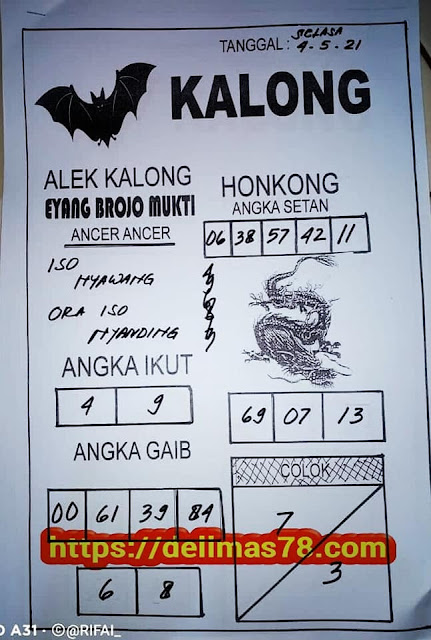 SELASA
TANGGAL : 4-5-21
KALONG
ALEK KALONG
EYANG BROJO MUKTI
ANCER ANCER
ISO
NYAWANG
ORA ISO
NYANDING
HONKONG
ANGKA SETAN
06 38 57 42 11
ANGKA IKUT
4 9
69 07 13
ANGKA GAIB
00 61 39 84
COLOK
7
3
https://delimas78.com
6 8
O A31 - ©@RIFAI_